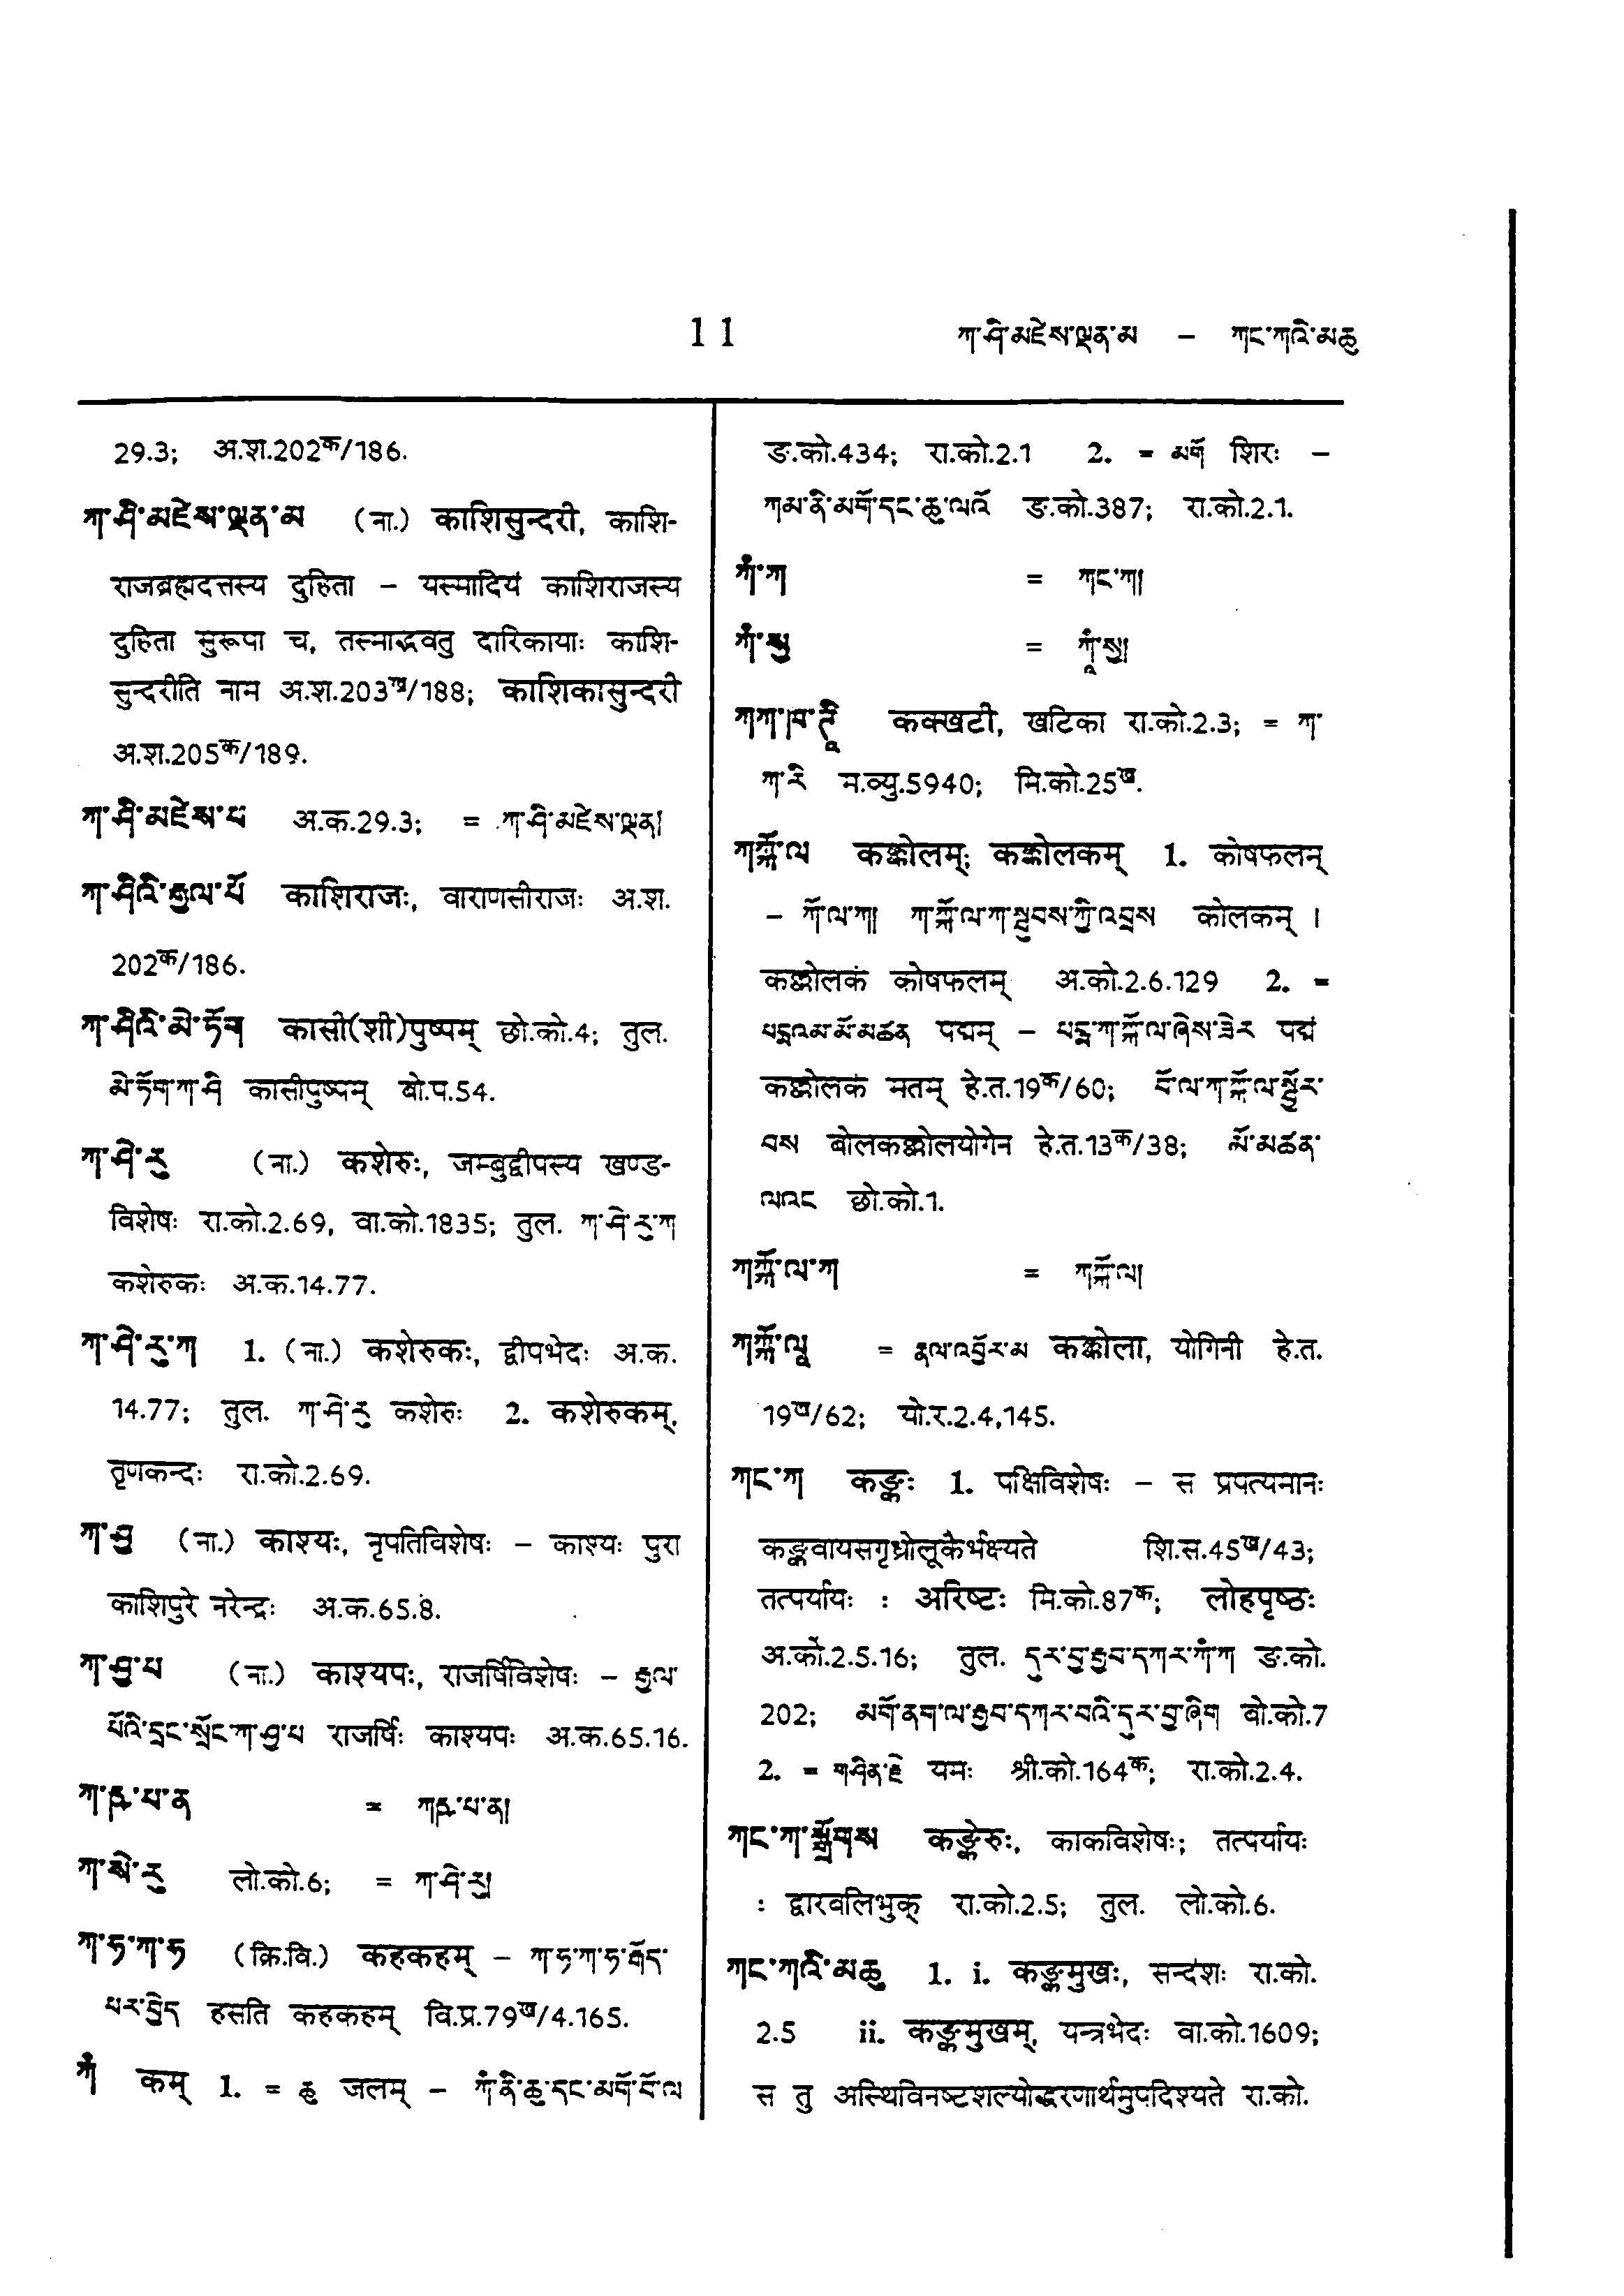 11 ཀ་ཤི་མཛེས་ལྡན་མ – ཀང་ཀའི་མཆུ
29.3; अ.श.202क/186.
ཀ་ཤི་མཛེས་ལྡན་མ (ना.) काशिसुन्दरी, काशि-
राजब्रह्मदत्तस्य दुहिता – यस्मादियं काशिराजस्य
दुहिता सुरूपा च, तस्माद्भवतु दारिकायाः काशि-
सुन्दरीति नाम अ.श.203ख/188; काशिकासुन्दरी
अ.श.205क/189.
ཀ་ཤི་མཛེས་པ अ.क.29.3; = ཀ་ཤི་མཛེས་ལྡན།
ཀ་ཤིའི་རྒྱལ་པོ काशिराजः, वाराणसीराजः अ.श.
202क/186.
ཀ་ཤིའི་མེ་ཏོག कासी(शी)पुष्पम् छो.को.4; तुल.
མེ་ཏོག་ཀ་ཤི कासीपुष्पम् बो.प.54.
ཀ་ཤེ་རུ (ना.) कशेरुः, जम्बुद्वीपस्य खण्ड-
विशेषः रा.को.2.69, वा.को.1835; तुल. ཀ་ཤེ་རུ་ཀ
कशेरुकः अ.क.14.77.
ཀ་ཤེ་རུ་ཀ 1. (ना.) कशेरुकः, द्वीपभेदः अ.क.
14.77; तुल. ཀ་ཤེ་རུ कशेरुः 2. कशेरुकम्,
तृणकन्दः रा.को.2.69.
ཀ་ཤྱ (ना.) काश्यः, नृपतिविशेषः – काश्यः पुरा
काशिपुरे नरेन्द्रः अ.क.65.8.
ཀ་ཤྱ་པ (ना.) काश्यपः, राजर्षिविशेषः – རྒྱལ་
པོའི་དྲང་སྲོང་ཀ་ཤྱ་པ राजर्षिः काश्यपः अ.क.65.16.
ཀ་རྵ་པ་ན = ཀརྵ་པ་ན།
ཀ་སེ་རུ लो.को.6; = ཀ་ཤེ་རུ།
ཀ་ཧ་ཀ་ཧ (क्रि.वि.) कहकहम् – ཀ་ཧ་ཀ་ཧ་གོད་
པར་བྱེད हसति कहकहम् वि.प्र.79ख/4.165.
ཀཾ कम् 1. = ཆུ जलम् – ཀཾ་ནི་ཆུ་དང་མགོ་བོ་ལ
ङ.को.434; रा.को.2.1 2. = མགོ शिरः –
ཀམ་ནི་མགོ་དང་ཆུ་ལའོ ङ.को.387; रा.को.2.1.
ཀཾ་ཀ = ཀང་ཀ།
ཀཾ་སུ = ཀཱཾ་སྱ།
ཀཀ་ཁ་ཊཱི कक्खटी, खटिका रा.को.2.3; = ཀ་
ཀ་རི म.व्यु.5940; मि.को.25ख.
ཀཀྐོ་ལ कक्कोलम्; कक्कोलकम् 1. कोषफलम्
– ཀོ་ལ་ཀ། ཀ་ཀྐོ་ལ་ཀ་སྦུབས་ཀྱི་འབྲས कोलकम् ।
कक्कोलकं कोषफलम् अ.को.2.6.129 2. =
པདྨའམ་མོ་མཚན पद्मम् – པདྨ་ཀ་ཀྐོ་ལ་ཞེས་ཟེར पद्मं
कक्कोलकं मतम् हे.त.19क/60; བོ་ལ་ཀ་ཀྐོ་ལ་སྦྱོར་
བས बोलकक्कोलयोगेन हे.त.13क/38; མོ་མཚན་
ལའང छो.को.1.
ཀཀྐོ་ལ་ཀ = ཀཀྐོ་ལ།
ཀཀྐོ་ལཱ = རྣལ་འབྱོར་མ कक्कोला, योगिनी हे.त.
19ख/62; यो.र.2.4,145.
ཀང་ཀ कङ्कः 1. पक्षिविशेषः – स प्रपत्यमानः
कङ्कवायसगृध्रोलूकैर्भक्ष्यते शि.स.45ख/43;
तत्पर्यायः : अरिष्टः मि.को.87क; लोहपृष्ठः
अ.को.2.5.16; तुल. དུར་བྱ་རྒྱབ་དཀར་ཀཾ་ཀ ङ.को.
202; མགོ་ནག་ལ་རྒྱབ་དཀར་བའི་དུར་བྱ་ཞིག बो.को.7
2. = གཤིན་རྗེ यमः श्री.को.164क; रा.को.2.4.
ཀང་ཀ་སྒྲོགས कङ्केरुः, काकविशेषः; तत्पर्यायः
: द्वारबलिभुक् रा.को.2.5; तुल. लो.को.6.
ཀང་ཀའི་མཆུ 1. i. कङ्कमुखः, सन्दंशः रा.को.
2.5 ii. कङ्कमुखम्, यन्त्रभेदः वा.को.1609;
स तु अस्थिविनष्टशल्योद्धरणार्थमुपदिश्यते रा.को.